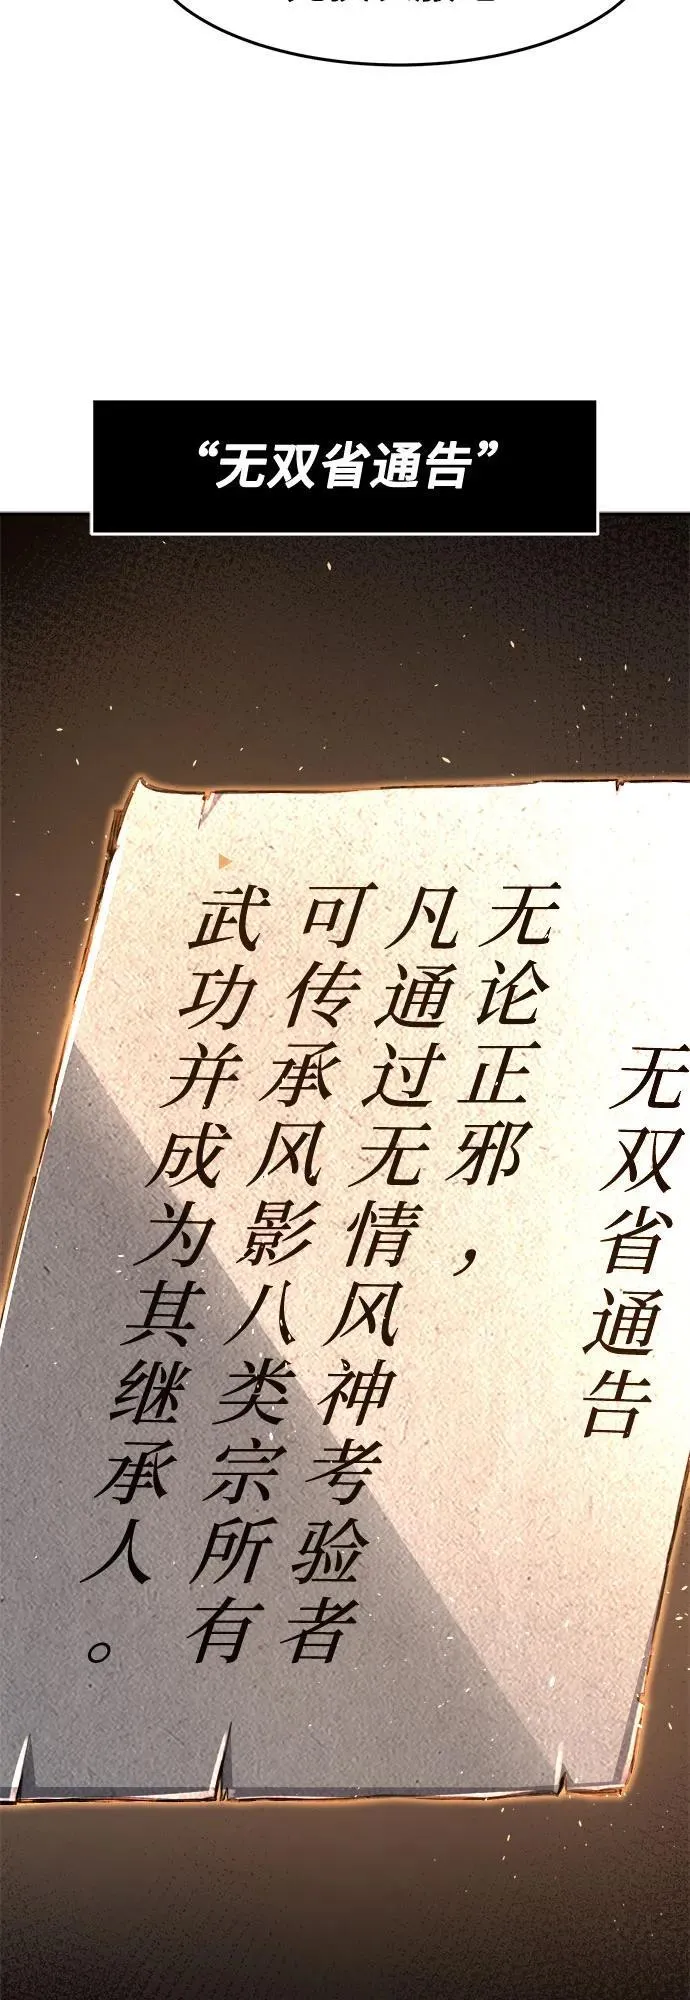 “无双省通告”
无双省通告
无论正邪，
凡通过无情风神考验者
可传承风影八类宗所有
武功并成为其继承人。